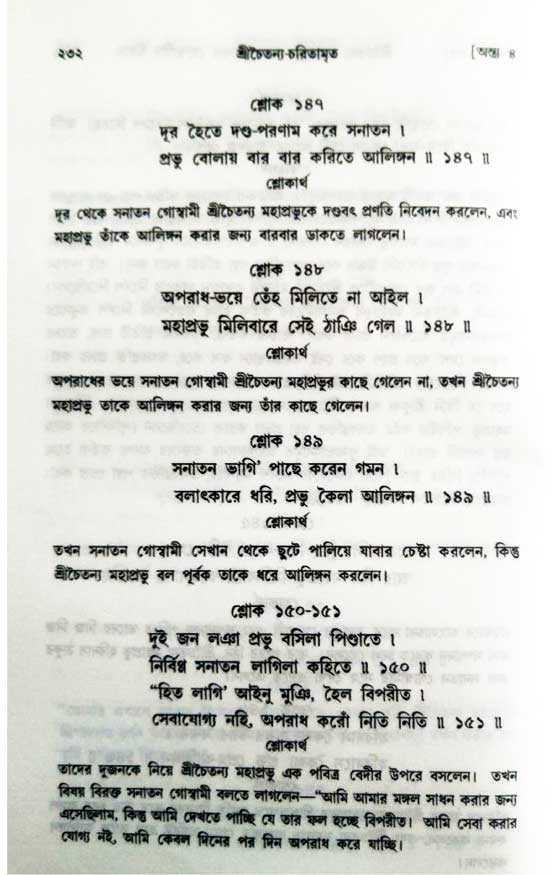 ২৩২ শ্রীচৈতন্য-চরিতামৃত [অন্ত্য ৪
শ্লোক ১৪৭
দূর হৈতে দণ্ড-পরণাম করে সনাতন ।
প্রভু বোলায় বার বার করিতে আলিঙ্গন ॥ ১৪৭ ॥
শ্লোকার্থ
দূর থেকে সনাতন গোস্বামী শ্রীচৈতন্য মহাপ্রভুকে দণ্ডবৎ প্রণতি নিবেদন করলেন, এবং
মহাপ্রভু তাঁকে আলিঙ্গন করার জন্য বারবার ডাকতে লাগলেন।
শ্লোক ১৪৮
অপরাধ-ভয়ে তেঁহ মিলিতে না আইল ।
মহাপ্রভু মিলিবারে সেই ঠাঞি গেল ॥ ১৪৮ ॥
শ্লোকার্থ
অপরাধের ভয়ে সনাতন গোস্বামী শ্রীচৈতন্য মহাপ্রভুর কাছে গেলেন না, তখন শ্রীচৈতন্য
মহাপ্রভু তাকে আলিঙ্গন করার জন্য তাঁর কাছে গেলেন।
শ্লোক ১৪৯
সনাতন ভাগি' পাছে করেন গমন ।
বলাৎকারে ধরি, প্রভু কৈলা আলিঙ্গন ॥ ১৪৯ ॥
শ্লোকার্থ
তখন সনাতন গোস্বামী সেখান থেকে ছুটে পালিয়ে যাবার চেষ্টা করলেন, কিন্তু
শ্রীচৈতন্য মহাপ্রভু বল পূর্বক তাকে ধরে আলিঙ্গন করলেন।
শ্লোক ১৫০-১৫১
দুই জন লঞা প্রভু বসিলা পিণ্ডাতে ।
নির্বিণ্ণ সনাতন লাগিলা কহিতে ॥ ১৫০ ॥
“হিত লাগি' আইনু মুঞি, হৈল বিপরীত ।
সেবাযোগ্য নহি, অপরাধ করোঁ নিতি নিতি ॥ ১৫১ ॥
শ্লোকার্থ
তাদের দুজনকে নিয়ে শ্রীচৈতন্য মহাপ্রভু এক পবিত্র বেদীর উপরে বসলেন। তখন
বিষয় বিরক্ত সনাতন গোস্বামী বলতে লাগলেন—“আমি আমার মঙ্গল সাধন করার জন্য
এসেছিলাম, কিন্তু আমি দেখতে পাচ্ছি যে তার ফল হচ্ছে বিপরীত। আমি সেবা করার
যোগ্য নই, আমি কেবল দিনের পর দিন অপরাধ করে যাচ্ছি।